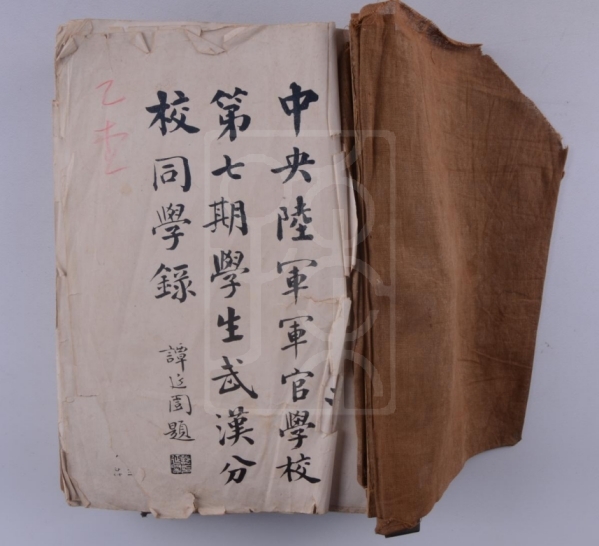 中央陸軍軍官學校
第七期學生武漢分
校同學錄
譚延闓題